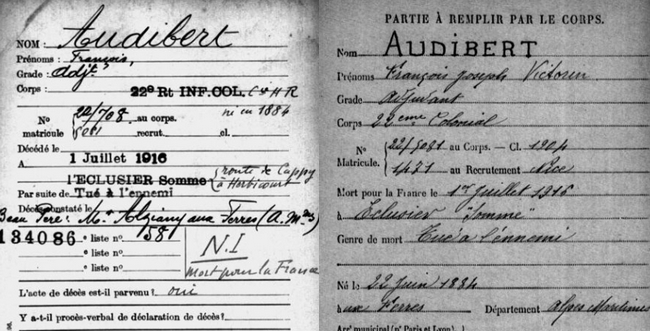 NOM : Audibert
Prénoms : François,
Grade : Adjt
Corps : 22e Rt INF.COL. C4 H R
né en 1884
No matricule 22/708 au corps.
5081 recrut. cl.
Décédé le
A 1 Juillet 1916
l'ECLUSIER Somme route de Cappy à Herbécourt
Par suite de Tué à l'ennemi
Décès constaté le
Beau Père : Mr Alziary aux Ferres (A. Mmes)
134086 e liste no 581
e liste no N.I
e liste no Mort pour la France
L'acte de décès est-il parvenu ? oui
Y a-t-il procès-verbal de déclaration de décès ?
PARTIE À REMPLIR PAR LE CORPS.
Nom AUDIBERT
Prénoms François Joseph Victorin
Grade adjudant
Corps 22eme Colonial
No Matricule. 22/5081 au Corps. — Cl. 1904
1431 au Recrutement Nice
Mort pour la France le 1er Juillet 1916
à Eclusier "Somme"
Genre de mort Tué à l'ennemi
Né le 22 juin 1884
à aux Ferres Département Alpes Maritimes
Arrt municipal (pr Paris et Lyon),